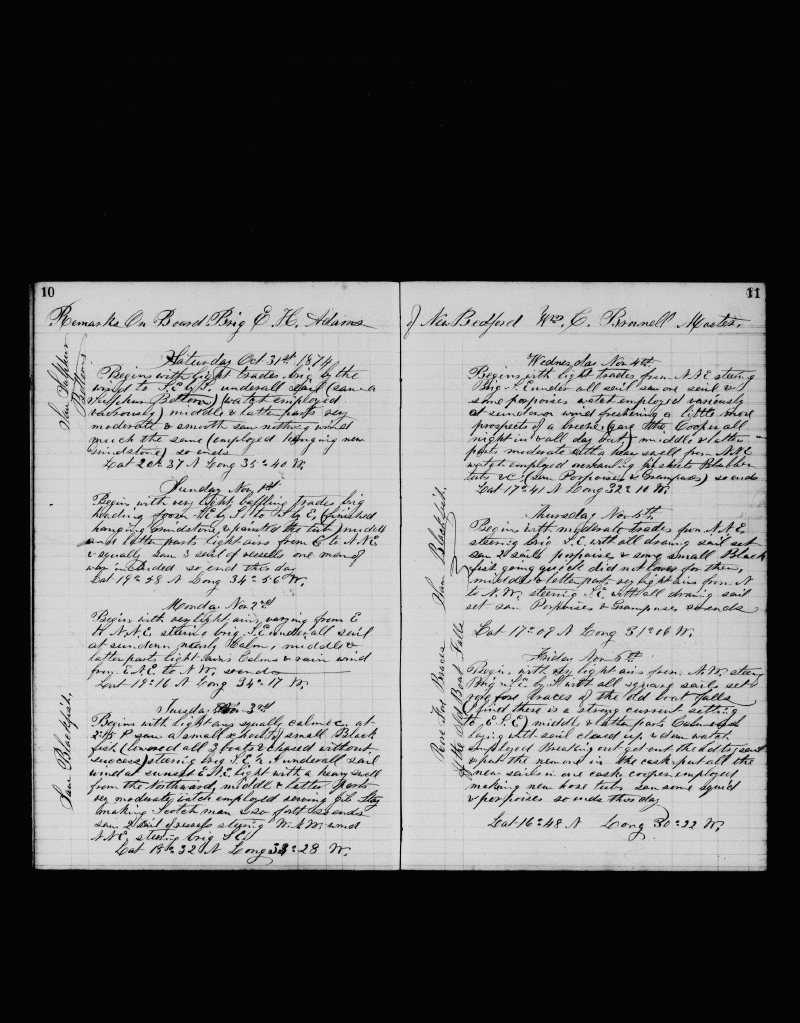 10
Remarks On Board Brig E. H. Adams
Saw Sulphur
Bottoms
Saturday Oct 31st 1874
Begins with light trades brig by the
wind to S.E. by S. underall sail (saw a
Sulphur Bottom) (watch employed
variously) middle & latter parts very
moderate & smooth saw nothing wind
much the same (employed hanging new
Grindstone) so ends
Lat 20=37 N Long 35=40 W.
Sunday Nov 1st
Begin with very light baffling trades brig
heading from S.E. by S. to S. by E. (finished
hanging grindstone, & painted the tub) middle
and latter parts light airs from E to N.N.E.
& squally saw 3 sail of vessells one man of
war included so end this day
Lat 19=48 N Long 34=56 W.
Monday Nov 2nd
Begin with very light air, varying from E
to N.N.E. steering brig S.E. under all sail
at sundown nearly Calm, middle &
latter parts light airs Calms & rain wind
from E.N.E. to N.W. so ends
Lat 19=16 N Long 34=17 W.
Saw Blackfish.
Tuesday Nov 3rd
Begins with light airs squally calms &c. at
P saw a small of small Black
fish (lowered all 3 boats & chased without
success) steering brig S.E. underall sail
wind at sunset E.N.E. light with a heavy swell
from the Northward, middle & latter parts
very moderate, watch employed serving jib stay
making Scotch man & so forth so ends
saw 2 sail of vessels steering W.N.W. wind
N.N.E. steering brig S.E.
Lat 18=32 N Long 33=28 W.
11
of New Bedford Wm. C. Brownell Master.
Wednesday Nov 4th
Begins with light trades from N.N.E. steering
Brig S.E. under all sail saw one sail &
some porpoises watch employed variously
at sundown wind freshening a little more
prospect of a breeze (gave the Cooper all
night in & all day out) middle & latter
parts moderate with a heavy swell from N.N.E.
watch employed overhauling jib sheets Blubber
tubs &c. (saw Porpoises & Grampuses) so ends
Lat 17=41 N Long 32=10 W.
Saw Blackfish.
Thursday Nov 5th
Begins with moderate trades from N.N.E.
steering brig S.E. with all drawing sail set
saw 2 sails porpoise & some small Black
fish going quick did not lower for them,
middle & latter part very light airs from N
to N.W. steering S.E. with all drawing sail
set saw Porpoises & Grampuses so ends
Lat 17=09 N Long 31=06 W.
Rove Fore Braces
of the Old Boat Falls
Friday Nov 6th
Begins with very light airs from N.W. steering
Brig S.E. by S. with all square sail set
rove fore braces of the old boat falls
(find there is a strong current setting
to E.S.E.) middle & latter parts Calm
laying with sail clued up, & down watch
employed Breaking out
& put the new one in the cask put all the
new sails in one cask cooper employed
making new hose tubs saw some squid
& porpoises so ends this day
Lat 16=48 N Long 30=22 W.